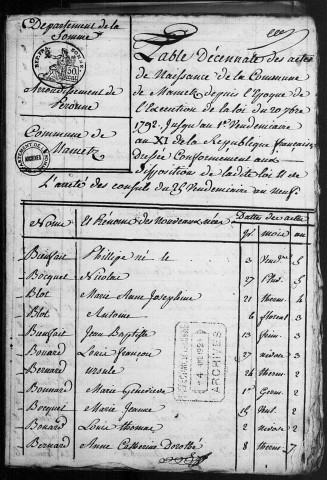 Departement de la
Somme
Arrondissement de
Péronne
Commune de
Mametz
Table Décennale des actes
de Naissance de la Commune
de Mametz depuis l'Epoque de
l'execution de la loi du 20 7bre
1792. Jusqu'au 1er Vendemiaire
an XI de la Republique française
dressée Conformement aux
disposition de ladite loi et de
L'arreté des consuls du 25 Vendemiaire an neuf.
Noms Et Prénoms des Nouveaux nés Dattes des actes
jol mois an
Bienfait Philippe né le 3 Vend.re 5
Bocquet Nicolas 27 Pluv. 5
Blot Marie Anne Josephine 21 therm. 4
Blot Antoine 6 floreal 3
Bienfait Jean Baptiste 13 frim. 3
Bouard Louis francois 27 nivose 3
Bernard Ursule 26 therm. 2
Bouard Marie Genevieve 1er Germ. 2
Bocquet Marie Jeanne 2
Bouard Louis thomas 2 nivose 2
Bernard Anne Catherine Dorothé 8 therm. 7
ARCHIVES